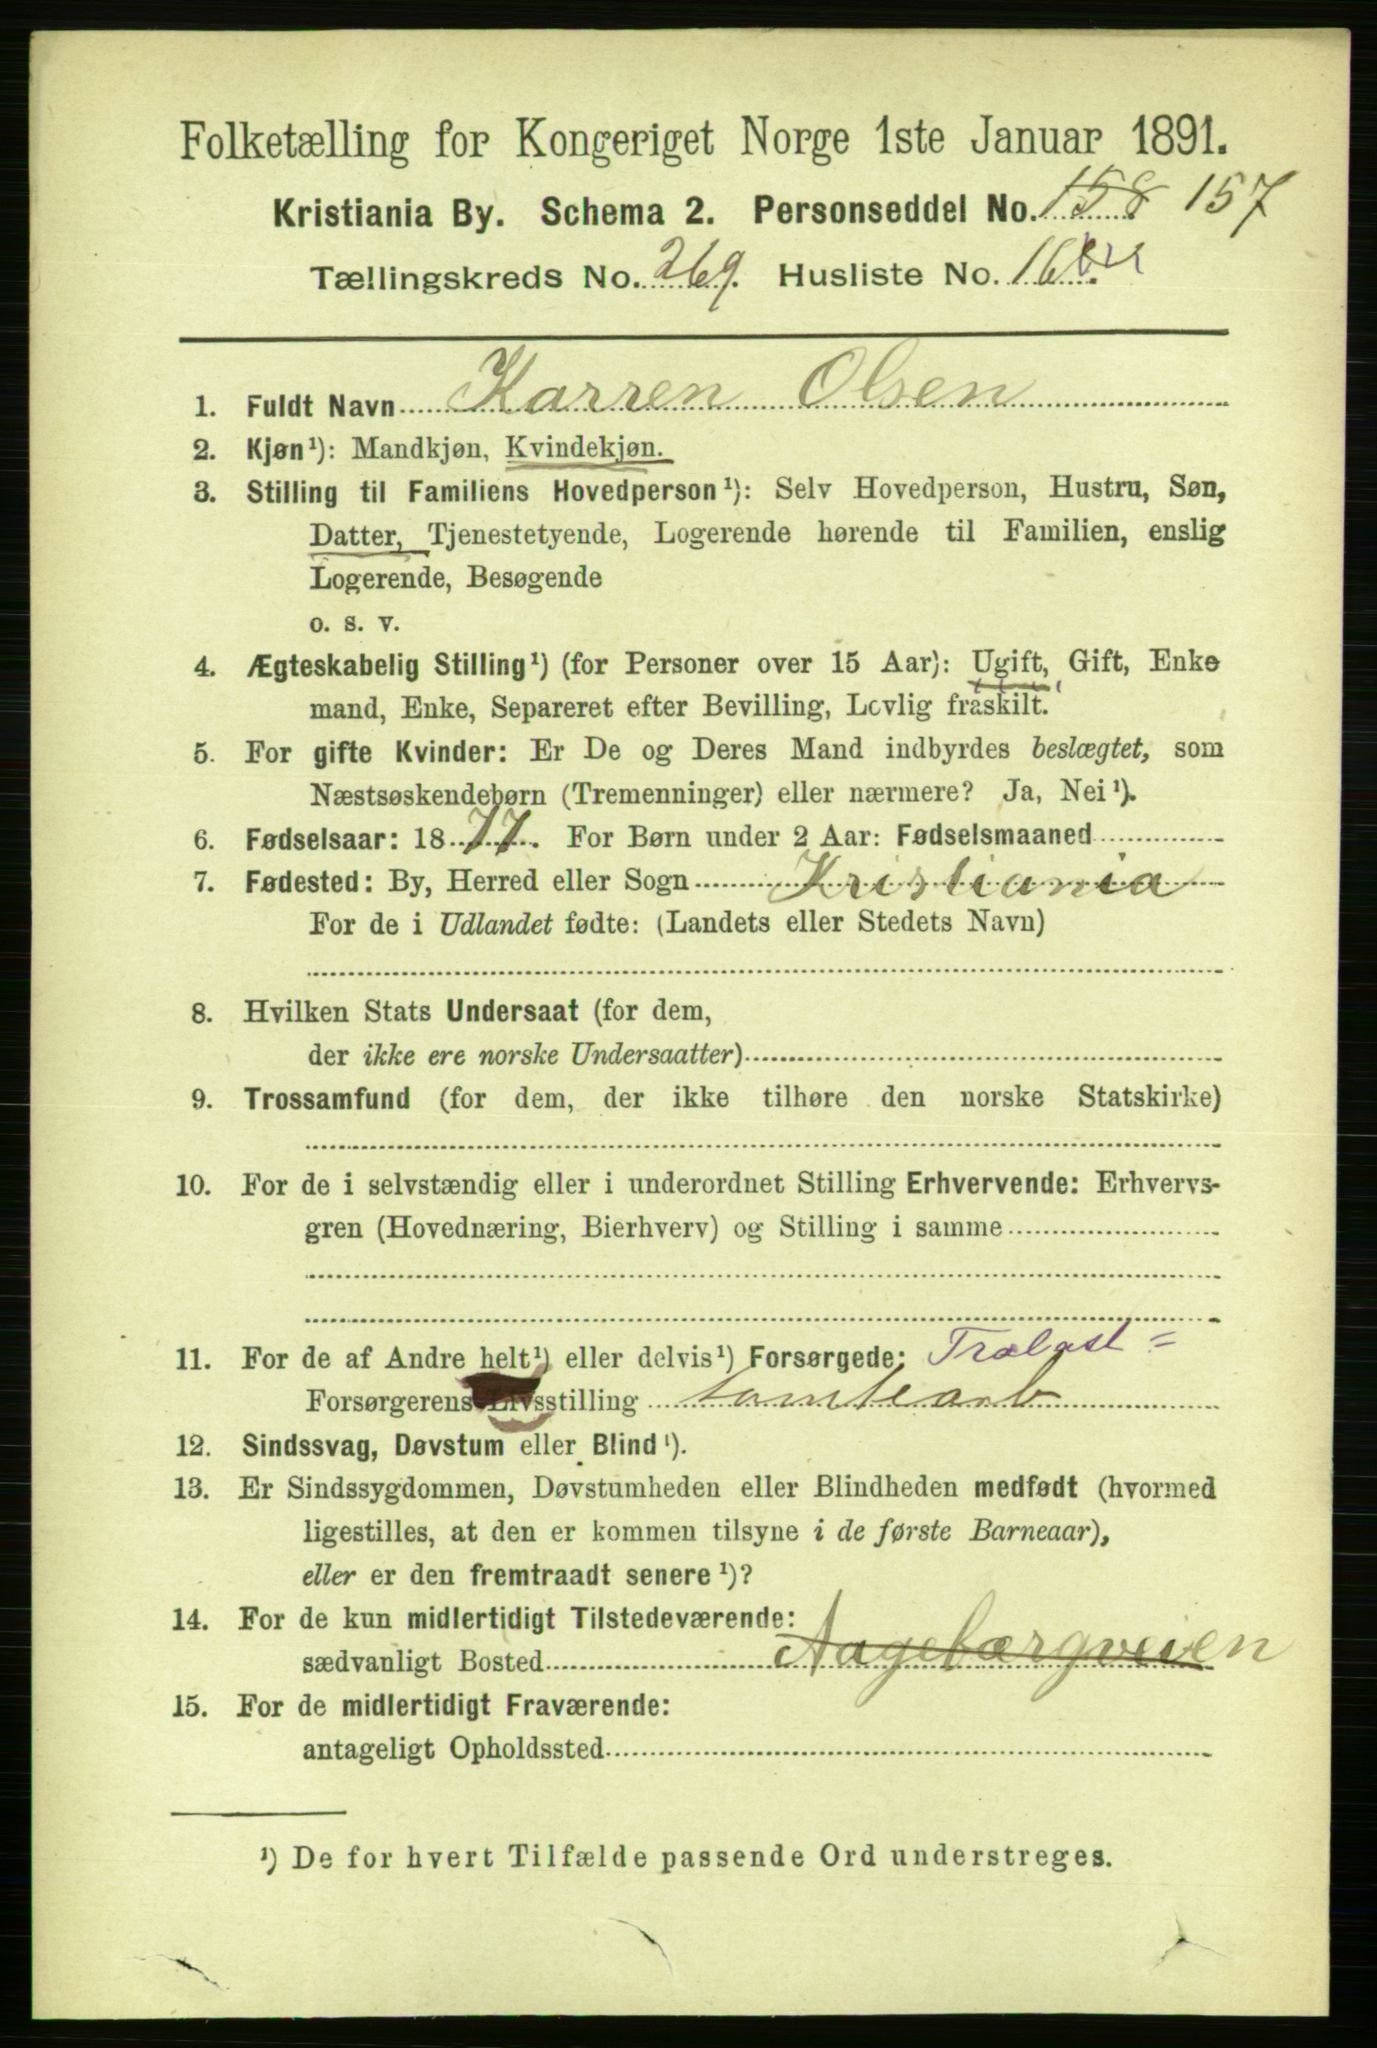 Folketælling for Kongeriget Norge 1ste Januar 1891.
Kristiania By. Schema 2. Personseddel No. 158 157
Tællingskreds No. 269. Husliste No. 16
1. Fuldt Navn Karren Olsen
2. Kjøn¹): Mandkjøn, Kvindekjøn.
3. Stilling til Familiens Hovedperson¹): Selv Hovedperson, Hustru, Søn,
Datter, Tjenestetyende, Logerende hørende til Familien, enslig
Logerende, Besøgende
o. s. v.
4. Ægteskabelig Stilling¹) (for Personer over 15 Aar): Ugift, Gift, Enke
mand, Enke, Separeret efter Bevilling, Lovlig fraskilt.
5. For gifte Kvinder: Er De og Deres Mand indbyrdes beslægtet, som
Næstsøskendebørn (Tremenninger) eller nærmere? Ja, Nei¹).
6. Fødselsaar: 1877. For Børn under 2 Aar: Fødselsmaaned
7. Fødested: By, Herred eller Sogn Kristiania
For de i Udlandet fødte: (Landets eller Stedets Navn)
8. Hvilken Stats Undersaat (for dem,
der ikke ere norske Undersaatter)
9. Trossamfund (for dem, der ikke tilhøre den norske Statskirke)
10. For de i selvstændig eller i underordnet Stilling Erhvervende: Erhvervs-
gren (Hovednæring, Bierhverv) og Stilling i samme
11. For de af Andre helt¹) eller delvis¹) Forsørgede: Trælast=
Forsørgerens Livsstilling tomtearb
12. Sindssvag, Døvstum eller Blind¹).
13. Er Sindssygdommen, Døvstumheden eller Blindheden medfødt (hvormed
ligestilles, at den er kommen tilsyne i de første Barneaar),
eller er den fremtraadt senere¹)?
14. For de kun midlertidigt Tilstedeværende:
sædvanligt Bosted Aagebærgveien
15. For de midlertidigt Fraværende:
antageligt Opholdssted
¹) De for hvert Tilfælde passende Ord understreges.